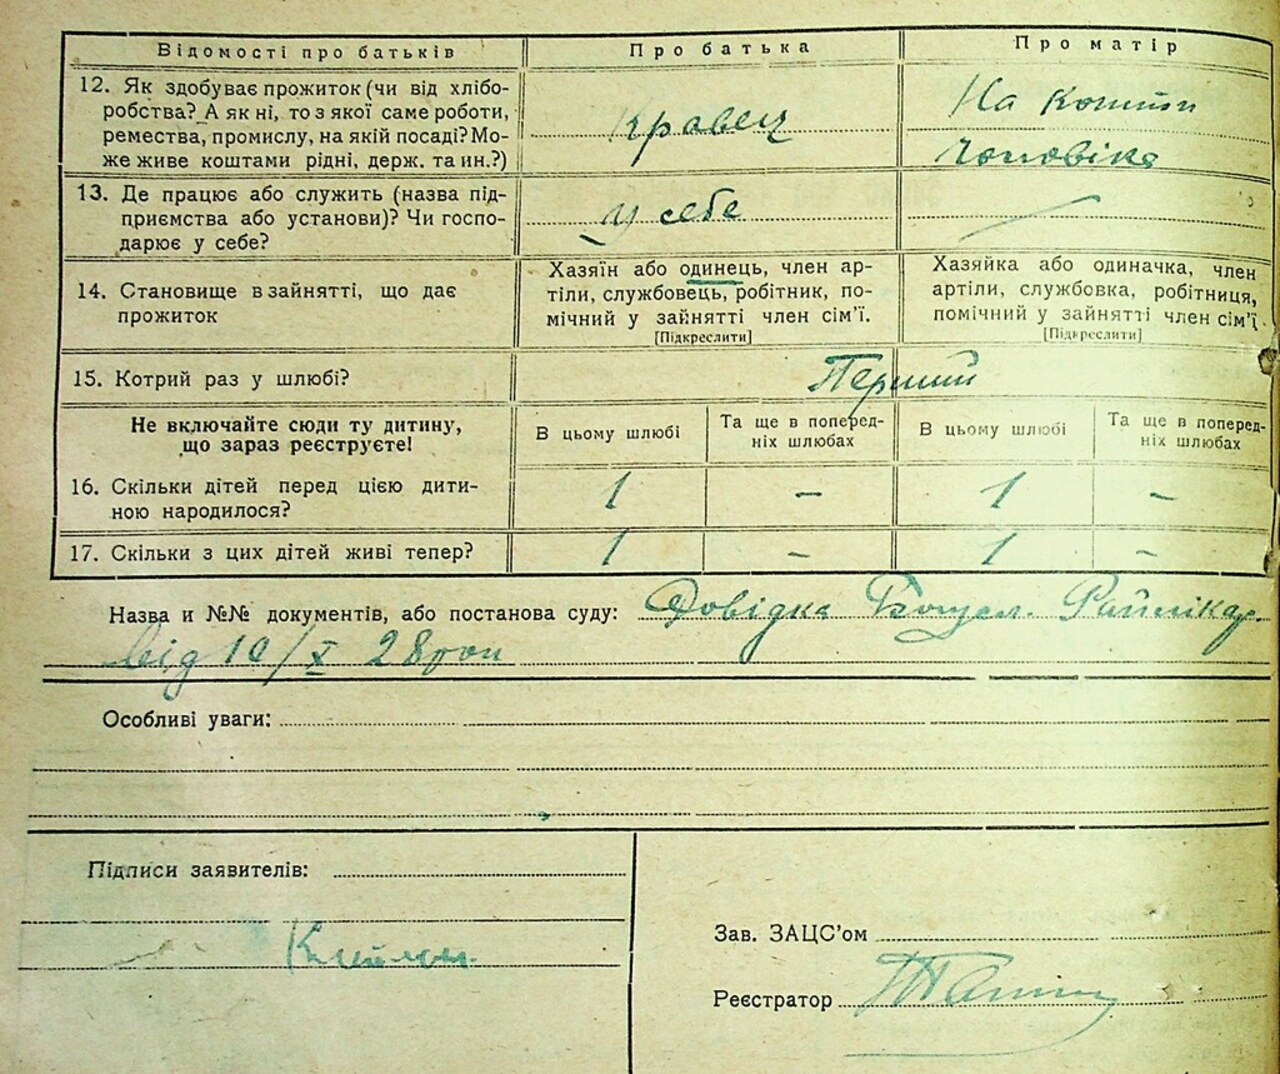 Відомості про батьків Про батька Про матір
12. Як здобуває прожиток (чи від хлібо-
робства? А як ні, то з якої саме роботи,
ремества, промислу, на якій посаді? Мо-
же живе коштами рідні, держ. та ин.?)
Кравец
На кошти
чоловіка
13. Де працює або служить (назва під-
приємства або установи)? Чи госпо-
дарює у себе?
у себе
14. Становище в зайнятті, що дає
прожиток
Хазяїн або одинець, член ар-
тіли, службовець, робітник, по-
мічний у зайнятті член сім'ї.
[Підкреслити]
Хазяйка або одиначка, член
артіли, службовка, робітниця,
помічний у зайнятті член сім'ї
[Підкреслити]
15. Котрий раз у шлюбі?
Перший
Не включайте сюди ту дитину,
що зараз реєструєте!
В цьому шлюбі
Та ще в поперед-
ніх шлюбах
В цьому шлюбі
Та ще в поперед-
ніх шлюбах
16. Скільки дітей перед цією дити-
ною народилося?
1 – 1 –
17. Скільки з цих дітей живі тепер? 1 – 1 –
Назва и №№ документів, або постанова суду: Довідка Райлікар.
від 10/X 28 рок
Особливі уваги:
Підписи заявителів:
Зав. ЗАЦС'ом
Реєстратор